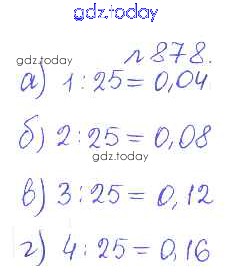 gdz.today
gdz.today №878.
а) 1 : 25 = 0,04
б) 2 : 25 = 0,08
gdz.today
в) 3 : 25 = 0,12
г) 4 : 25 = 0,16